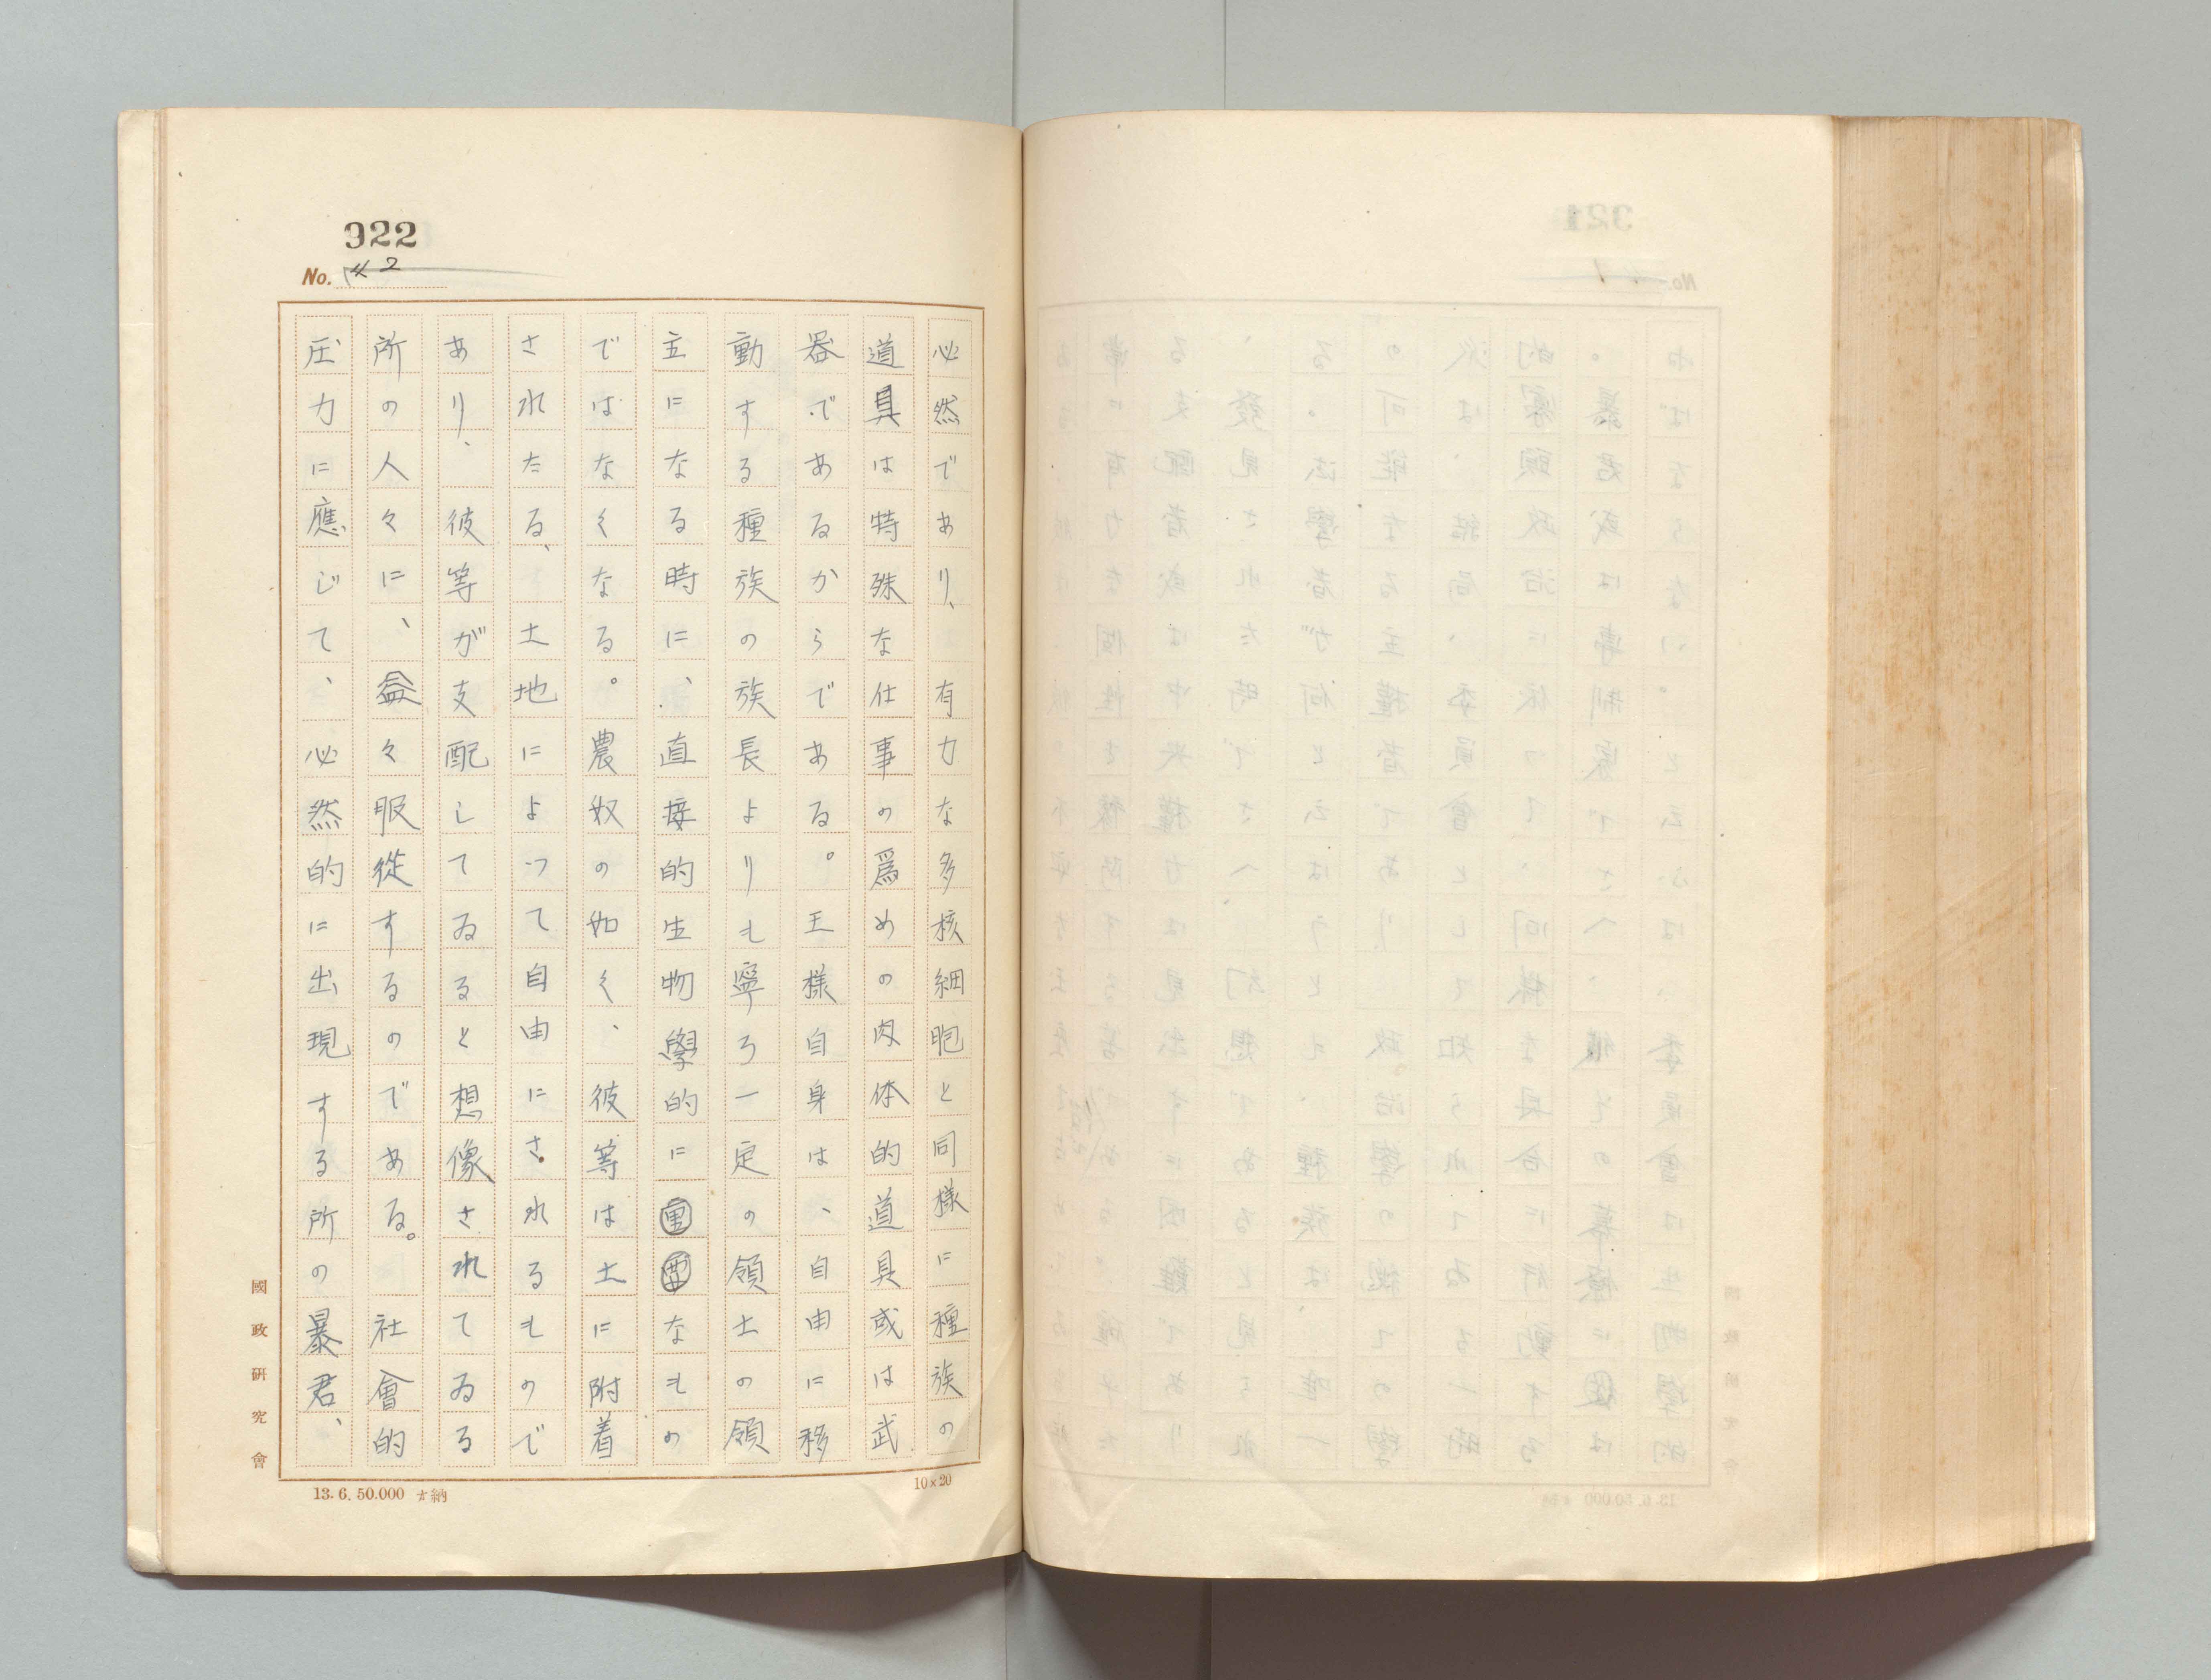 922
No. 42
必然であり、有力な多核細胞と同樣に種族の
道具は特殊な仕事の爲めの肉体的道具或は武
器であるからである。王樣自身は、自由に移
動する種族の族長よりも寧ろ一定の領土の領
主になる時に、直接的生物學的に重要なもの
ではなくなる。農奴の如く、彼等は土に附着
されたる、土地によつて自由にされるもので
あり、彼等が支配してゐると想像されてゐる
所の人々に、益々服從するのである。社會的
圧力に應じて、必然的に出現する所の暴君、
國政研究會
13.6.50.000 納
10×20